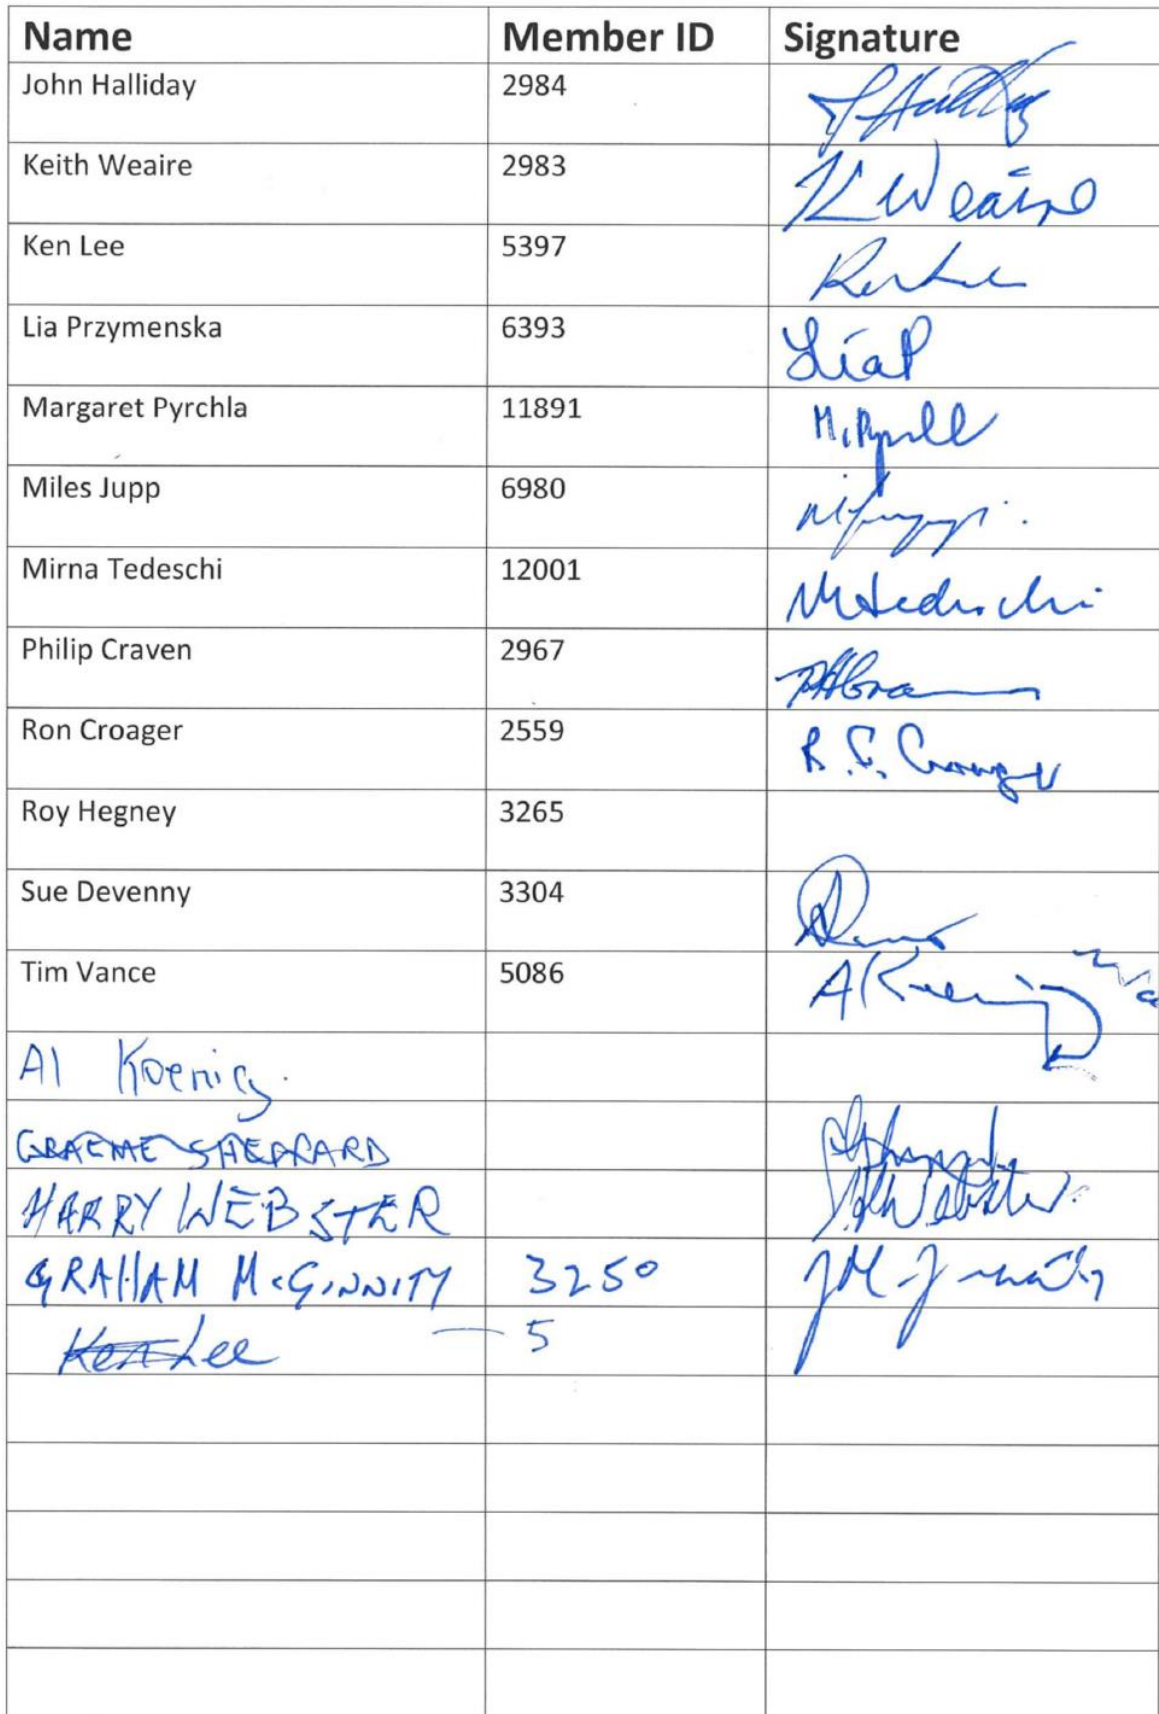 Name Member ID Signature
John Halliday 2984
Keith Weaire 2983 K Weaire
Ken Lee 5397
Lia Przymenska 6393 Lia P
Margaret Pyrchla 11891
Miles Jupp 6980
Mirna Tedeschi 12001 M Tedeschi
Philip Craven 2967
Ron Croager 2559
Roy Hegney 3265
Sue Devenny 3304
Tim Vance 5086 A Koenig
Al Koenig.
GRAEME SHEPPARD
HARRY WEBSTER
GRAHAM McGINNITY 3250
Ken Lee — 5